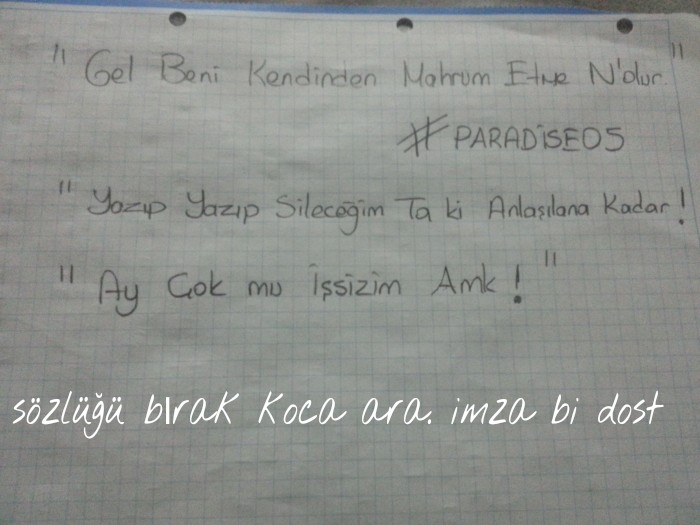 " Gel Beni Kendinden Mahrum Etme N'olur. "
#PARADİSE05
" Yazıp Yazıp Sileceğim Ta ki Anlaşılana Kadar !
" Ay Çok mu İşsizim Amk ! "
sözlüğü bIrak koca ara. imza bi dost